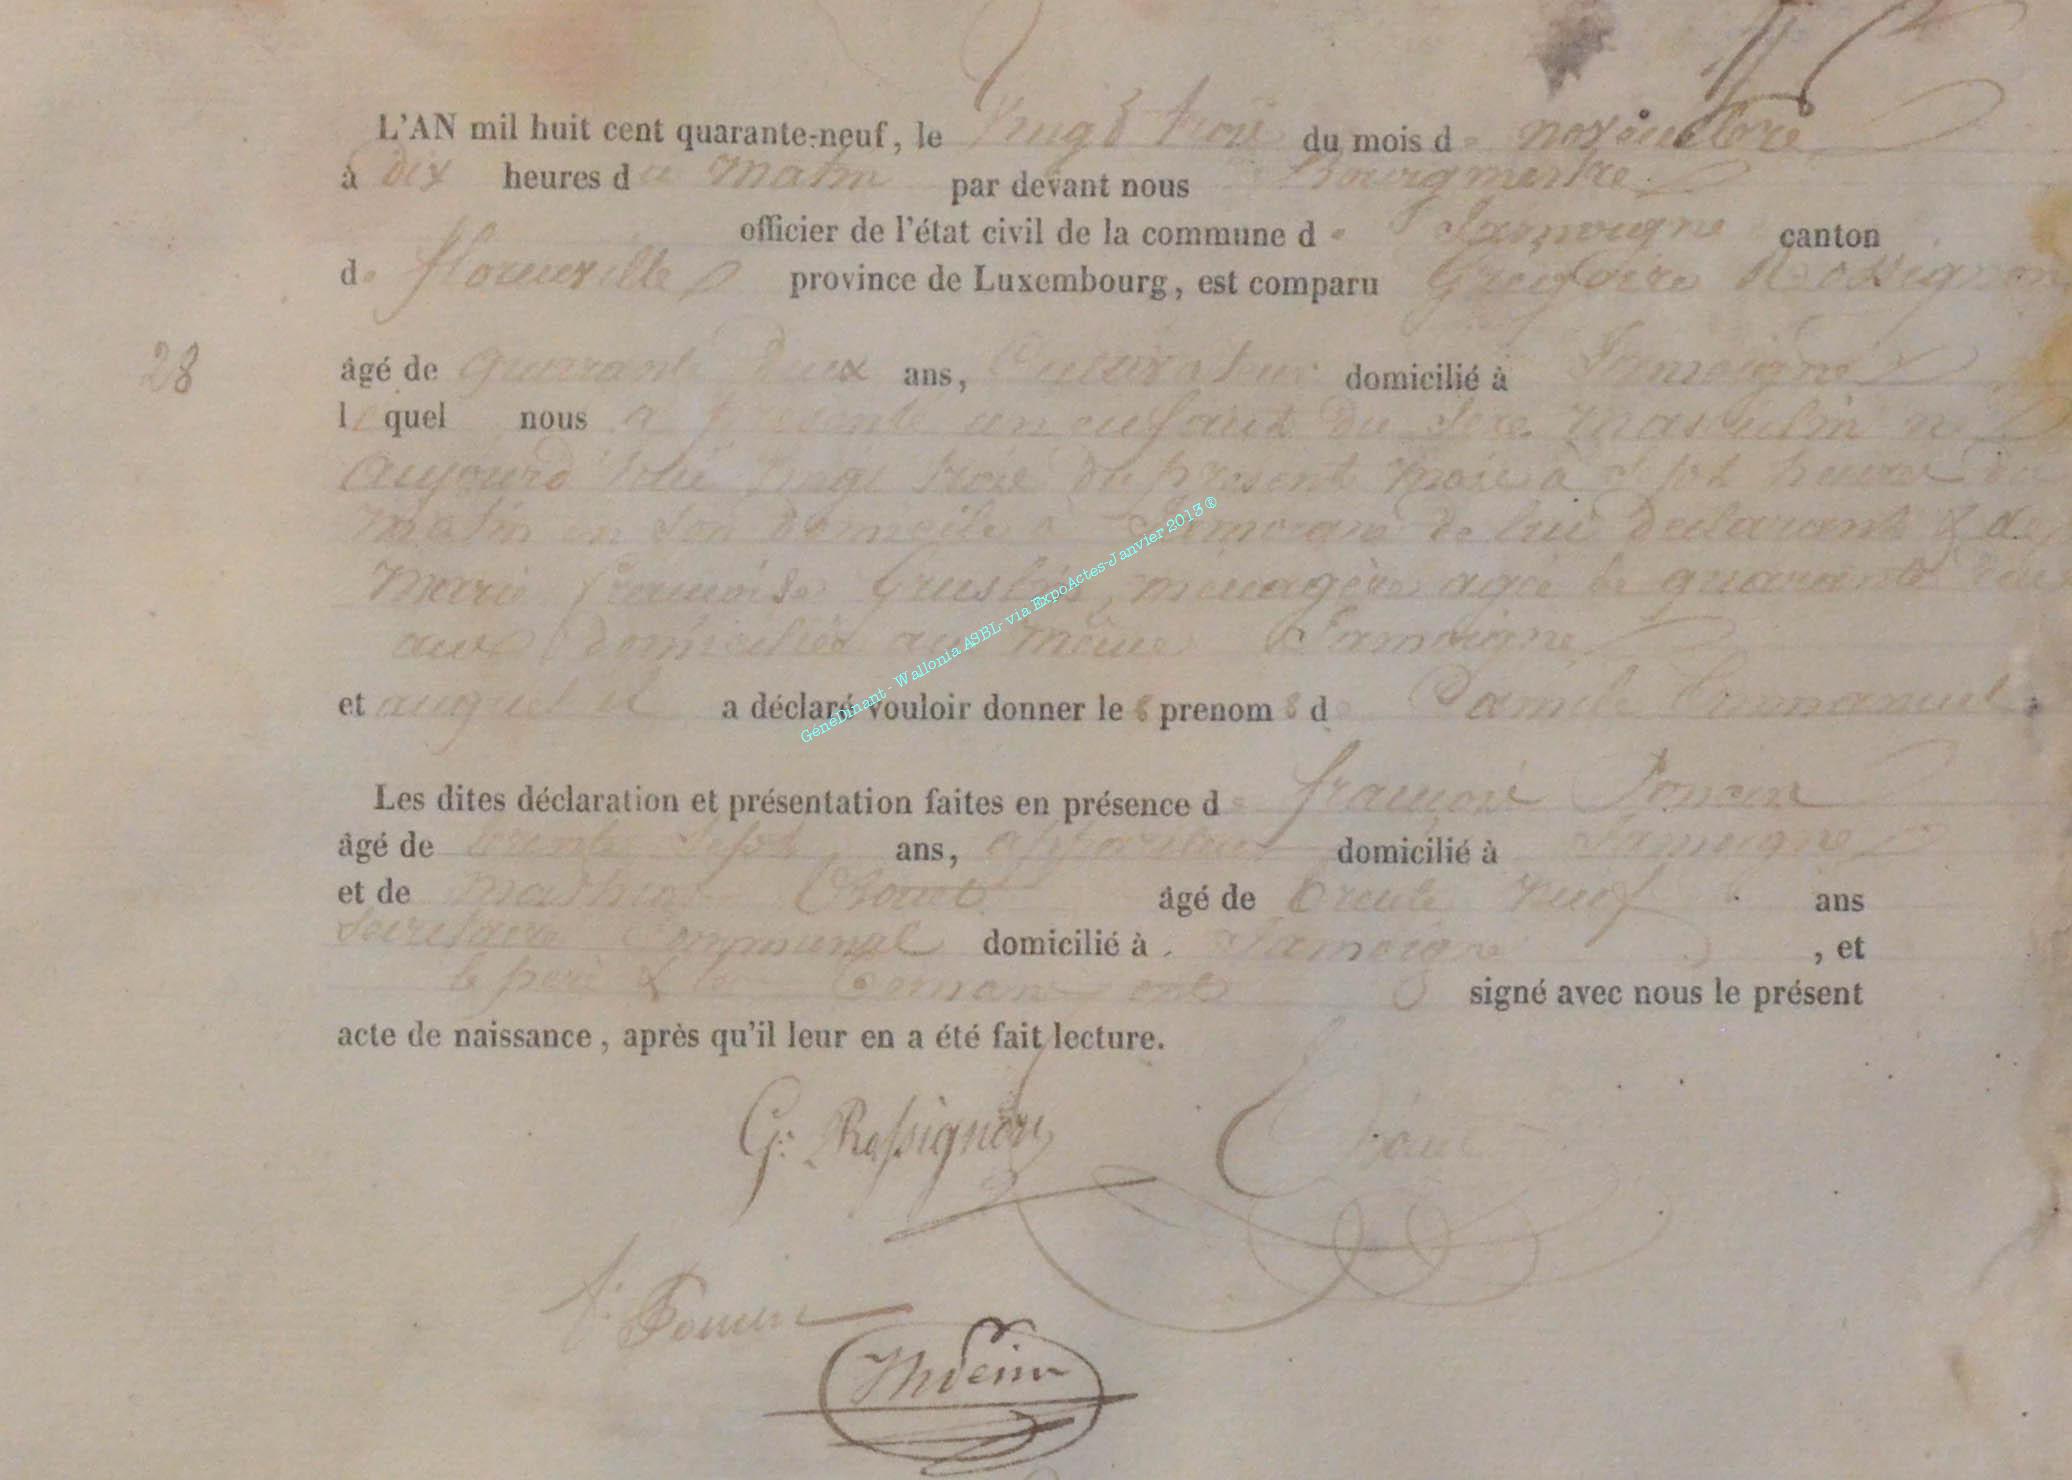 L'AN mil huit cent quarante-neuf, le Vingt trois du mois de novembre
à dix heures du matin par devant nous Bourgmestre
officier de l'état civil de la commune de Jamoigne canton
de florenville province de Luxembourg, est comparu Gregoire Rossignon
28 âgé de quarante deux ans, Cultivateur domicilié à Jamoigne
lequel nous a presenté un enfant du sexe masculin né
aujourd'hui vingt trois du present mois à sept heures du
matin en son domicile à Jamoigne de lui declarant & de
Marie françoise menagère agée de quarante deux
ans domiciliée au même Jamoigne
et auquel il a déclaré vouloir donner les prenoms de Camile Emmanuel
Les dites déclaration et présentation faites en présence de françois Poncin
âgé de trente sept ans, domicilié à Jamoigne
et de âgé de trente neuf ans
secretaire communal domicilié à Jamoigne , et
le père & les temoins ont signé avec nous le présent
acte de naissance, après qu'il leur en a été fait lecture.
G: Rossignon
f: Poncin
GénéDinant - Wallonia ASBL- via ExpoActes-Janvier 2013 ®